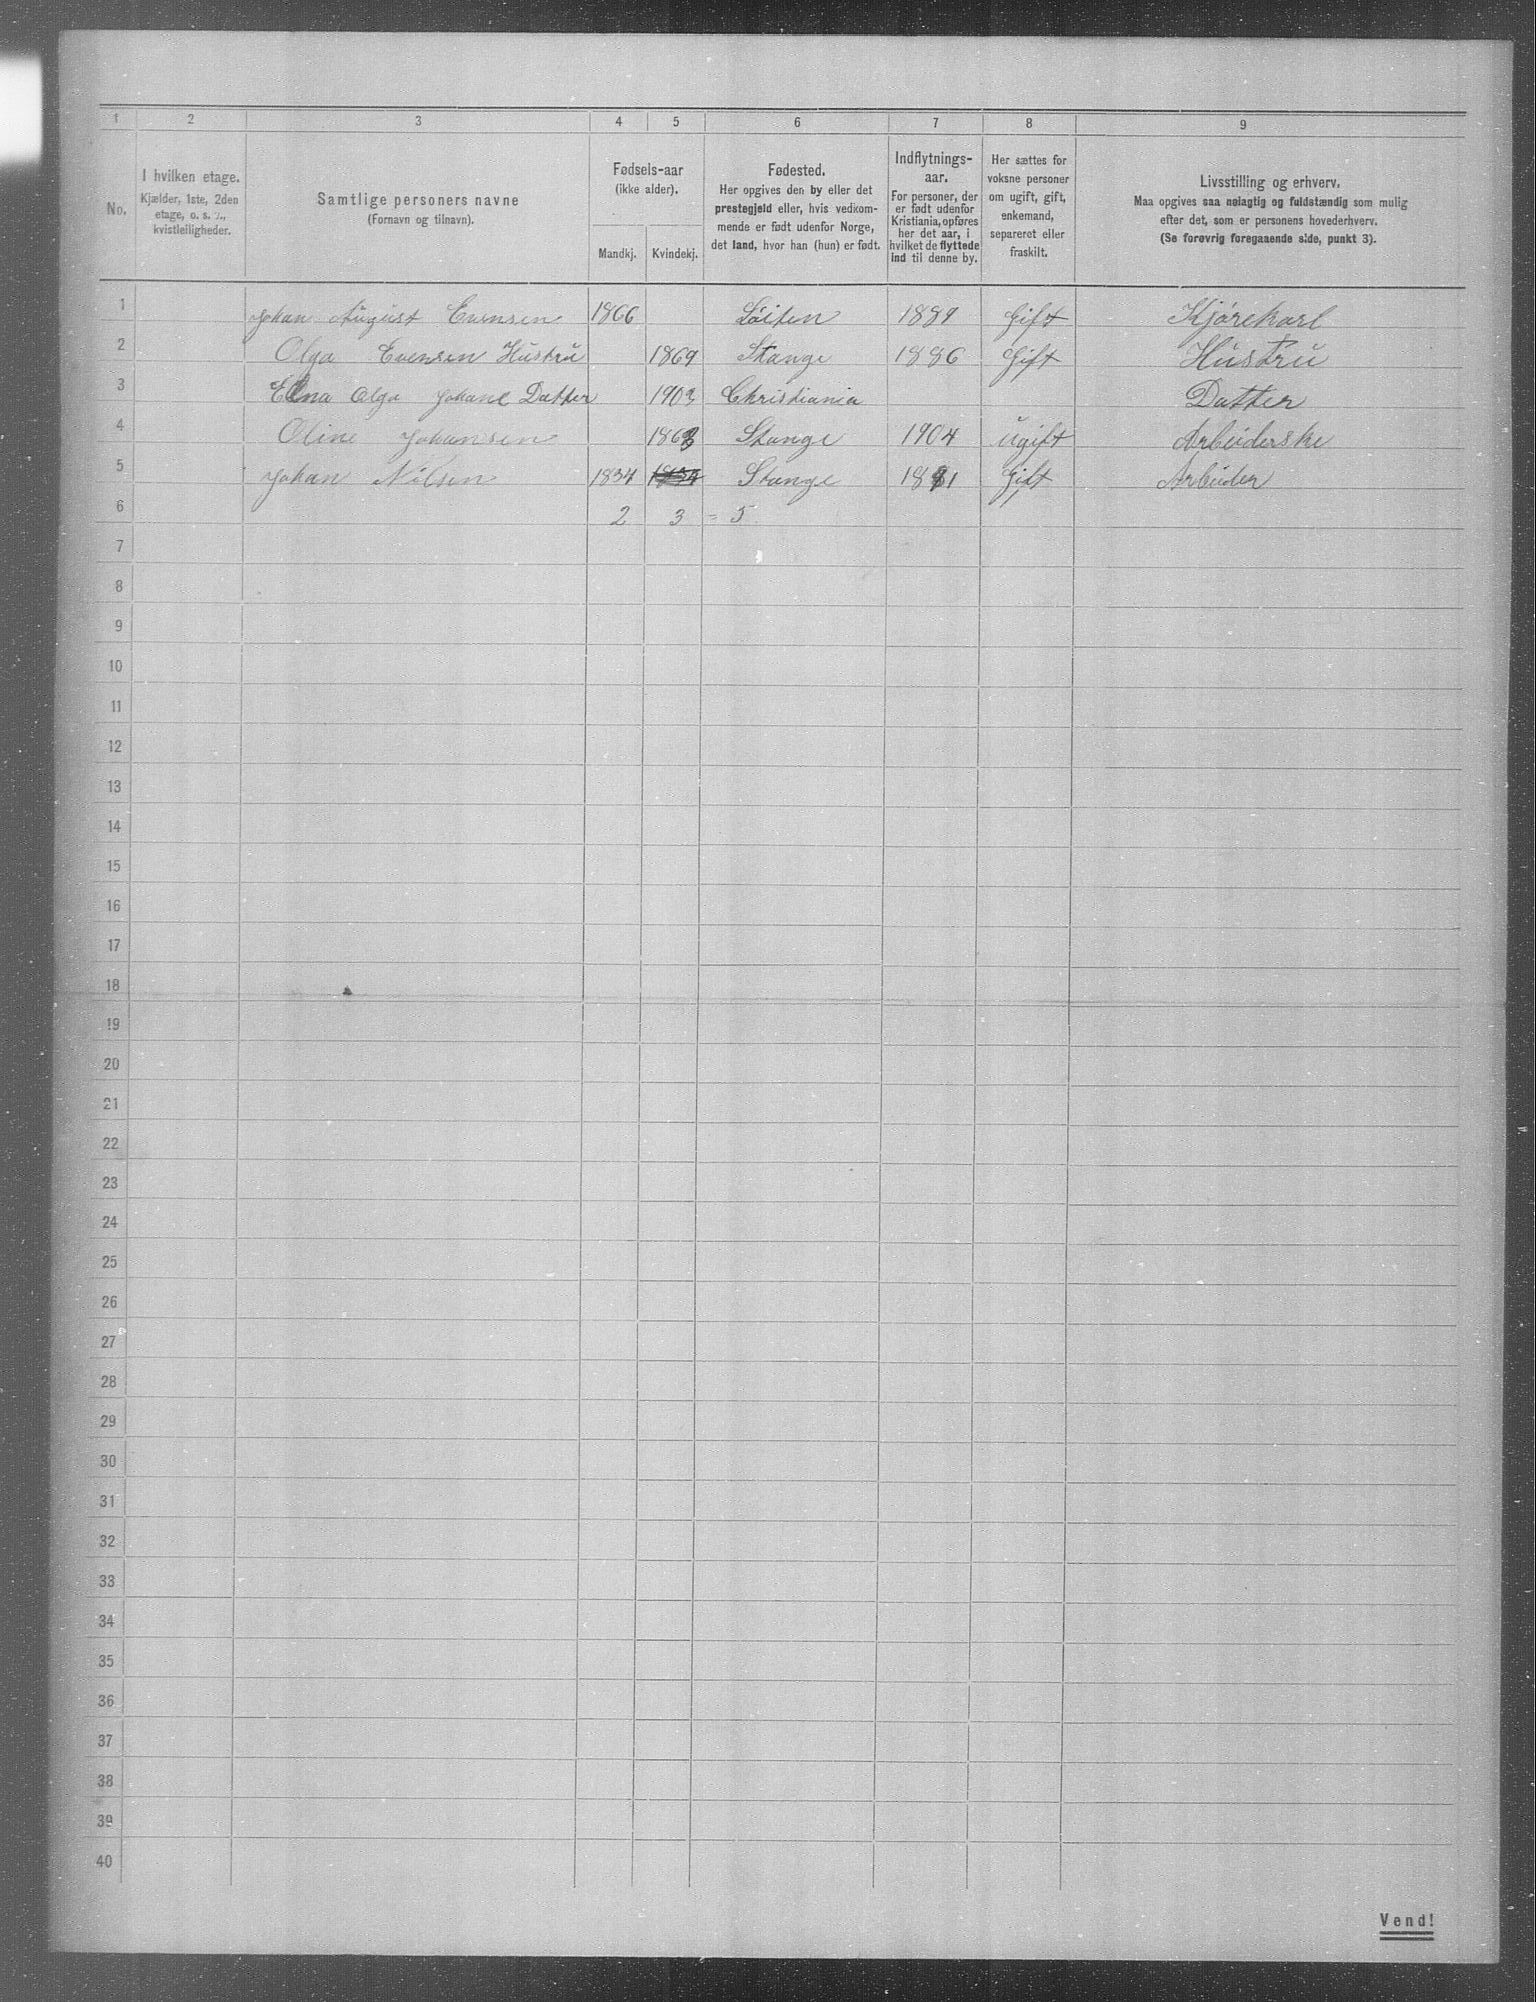 1 2 3 4 5 6 7 8 9
No.
I hvilken etage.
Kjælder, 1ste, 2den
etage, o. s. v.,
kvistleiligheder.
Samtlige personers navne
(Fornavn og tilnavn).
Fødsels-aar
(ikke alder).
Mandkj. Kvindekj.
Fødested.
Her opgives den by eller det
prestegjeld eller, hvis vedkom-
mende er født udenfor Norge,
det land, hvor han (hun) er født.
Indflytnings-
aar.
For personer, der
er født udenfor
Kristiania, opføres
her det aar, i
hvilket de flyttede
ind til denne by.
Her sættes for
voksne personer
om ugift, gift,
enkemand,
separeret eller
fraskilt.
Livsstilling og erhverv.
Maa opgives saa nøiagtig og fuldstændig som mulig
efter det, som er personens hovederhverv.
(Se forøvrig foregaaende side, punkt 3).
1 Johan August Evensen 1866 Löiten 1889 Gift Kjörekarl
2 Olga Evensen Hustru 1869 Stange 1886 Gift Hustru
3 Olga Johane Datter 1903 Christiania Datter
4 Oline Johansen 1863 Stange 1904 ugift Arbeiderske
5 Johan Nilsen 1834 1834 Stange Gift Arbeider
6 2 3 = 5
7
8
9
10
11
12
13
14
15
16
17
18
19
20
21
22
23
24
25
26
27
28
29
30
31
32
33
34
35
36
37
38
39
40
Vend!